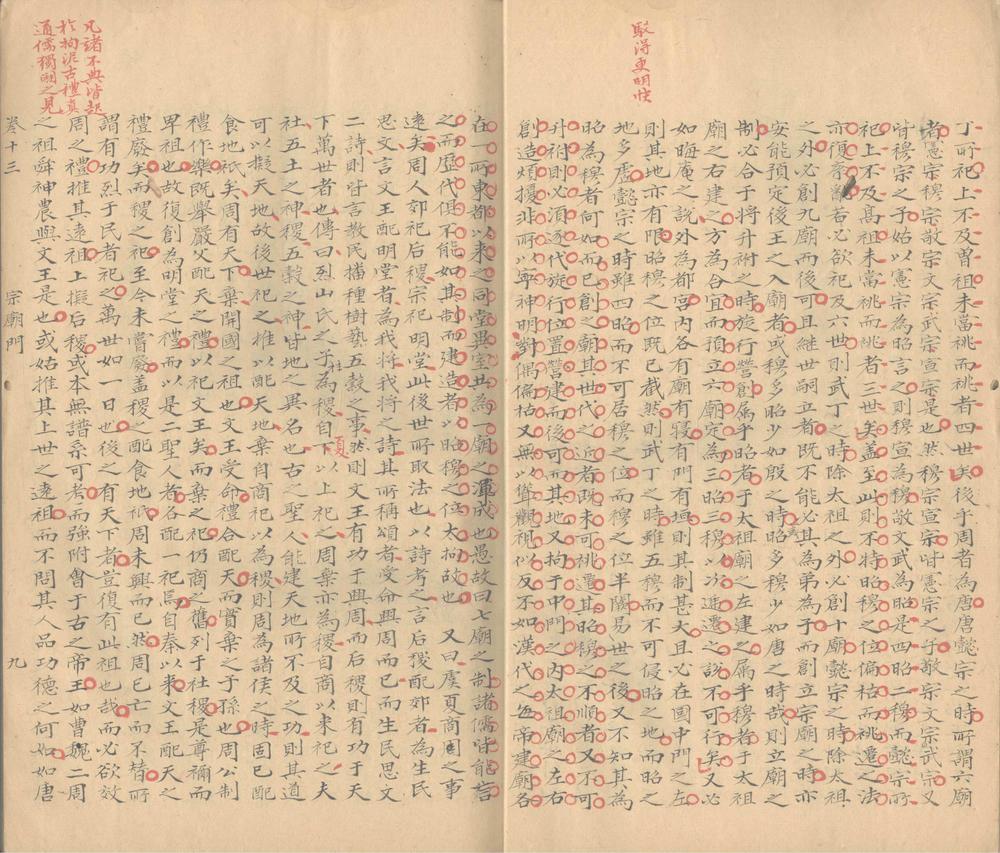 駁得更明快
丁所祀上不及曾祖未當祧而祧者四世矣後乎周者為唐唐懿宗之時所謂六廟
者憲宗穆宗敬宗文宗武宗宣宗是也然穆宗宣宗皆憲宗之子敬宗文宗武宗又
皆穆宗之子始以憲宗為昭言之則穆宣為穆敬文武為昭是四昭二穆而懿宗所
祀上不及高祖未當祧而祧者三世矣蓋至此則不特昭穆之位偏枯而祧遷之法
亦復紊亂若必欲祀及六世則武丁之時除太祖之外必創十廟懿宗之時除太祖
之外必創九廟而後可且繼世嗣立者既不能必其為弟為子而創立宗廟之時亦
安能預定後王之入廟者或穆多昭少如殷之時昭多穆少如唐之時哉則立廟之
制必合于將升祔之時旋行營創屬乎昭者于太祖廟之左建之屬乎穆者于太祖
廟之右建之方為合宜而預立六廟定為三昭三穆以次遞遷之說不可行矣又必
如晦庵之說外為都宮內各有廟有寢有門有垣則其制甚大且必在國中門之左
則其地亦有限昭穆之位既已截然則武丁之時雖五穆而不可侵昭之地而昭之
地多虛懿宗之時雖四昭而不可居穆之位而穆之位半闕易世之後又不知其為
昭為穆者何如而已創之廟其世代之近者既未可祧遷其昭穆之不順者又不可
升祔則必須逐代旋行位置營建而後可而其地又拘于中門之內太祖廟之左右
創造煩擾非所以寧神明對偶偏枯又無以聳觀視似反不如漢代之每帝建廟各
在一所東都以來之同堂異室共為一廟之渾成也愚故曰七廟之制諸儒皆能言
之而歷代俱不能如其制而建造者以昭穆之位太拘故也 又曰虞夏商周之事
遠矣周人郊祀后稷宗祀明堂此後世所取法也以詩考之言后稷配郊者為生民
思文言文王配明堂者為我將我將之詩其所稱頌者受命興周而已而生民思文
二詩則皆言教民播種樹藝五穀之事然則文王有功于興周而后稷則有功于天
下萬世者也傳曰烈山氏之子柱為稷自夏以上祀之周棄亦為稷自商以來祀之夫
社五土之神稷五穀之神皆地之異名也古之聖人能建天地所不及之功則其道
可以擬天地故後世祀之推以配天地棄自商祀以為稷則周為諸侯之時固已配
食地祇矣周有天下棄開國之祖也文王受命禮合配天而實棄之子孫也周公制
禮作樂既舉嚴父配天之禮以祀文王矣而棄之祀仍商之舊列于社稷是尊禰而
卑祖也故復創為明堂之禮而以是二聖人者各配一祀焉自秦以來文王配天之
禮廢矣而稷之祀至今未嘗廢蓋稷之配食地祇周未興而已然周已亡而不替所
謂有功烈于民者祀之萬世如一日也後之有天下者豈復有此祖也哉而必欲效
周之禮推其遠祖上擬后稷或本無譜系可考而強附會于古之帝王如曹魏二周
之祖舜神農與文王是也或姑推其上世之遠祖而不問其人品功德之何如如唐
卷十三 宗廟門 九
凡諸不典皆起
於拘泥古禮真
通儒獨闢之見